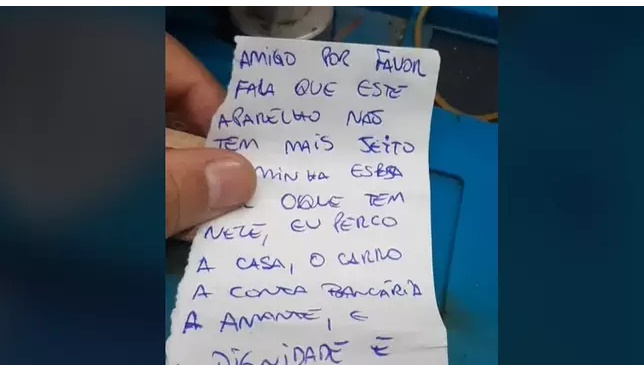 AMIGO POR FAVOR
FALA QUE ESTE
APARELHO NÃO
TEM MAIS JEITO
MINHA ESPSA
OQUE TEM
NELE, EU PERCO
A CASA, O CARRO
A CONTA BANCÁRIA
A AMANTE, E
DIGNIDADE E